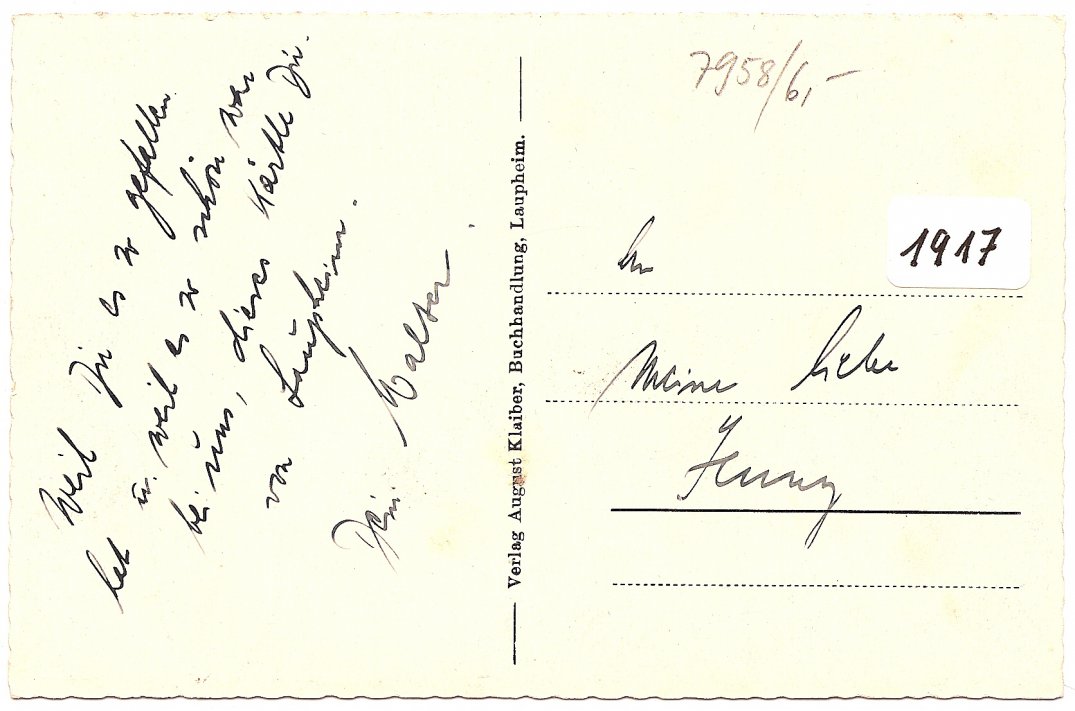 Weil Dir es so gefallen
hat u. weil es so schön war
bei uns, dieses Kärtle Dir.
von Laupheim.
Dein Walter
Verlag August Klaiber, Buchhandlung, Laupheim.
7958/6,-
1917
An
Meine liebe
Jenny